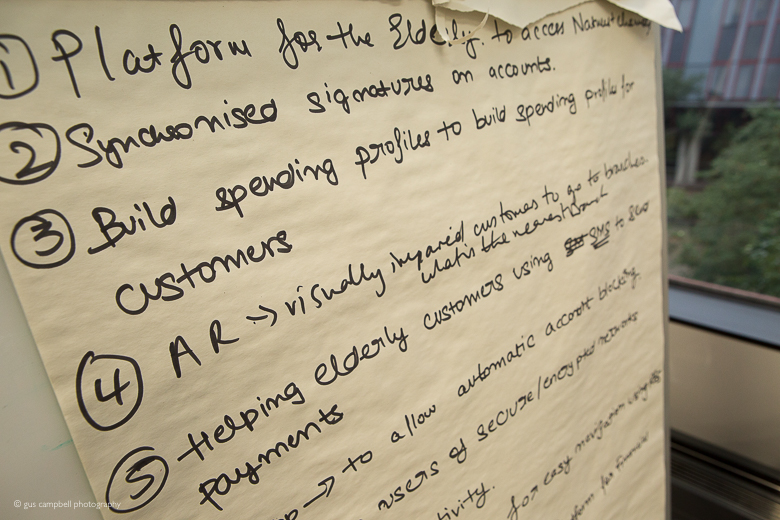 ① Platform for the Elderly. to access
② Synchronised signatures on accounts.
③ Build spending profiles to build spending profiles for
customers
④ AR → visually impared customes to go to branches.
what is the nearest branch
⑤ Helping elderly customers using SMS to send
payments
→ to allow automatic account blocking.
users of secure/encrypted networks
for easy navigation using
for financial
© gus campbell photography